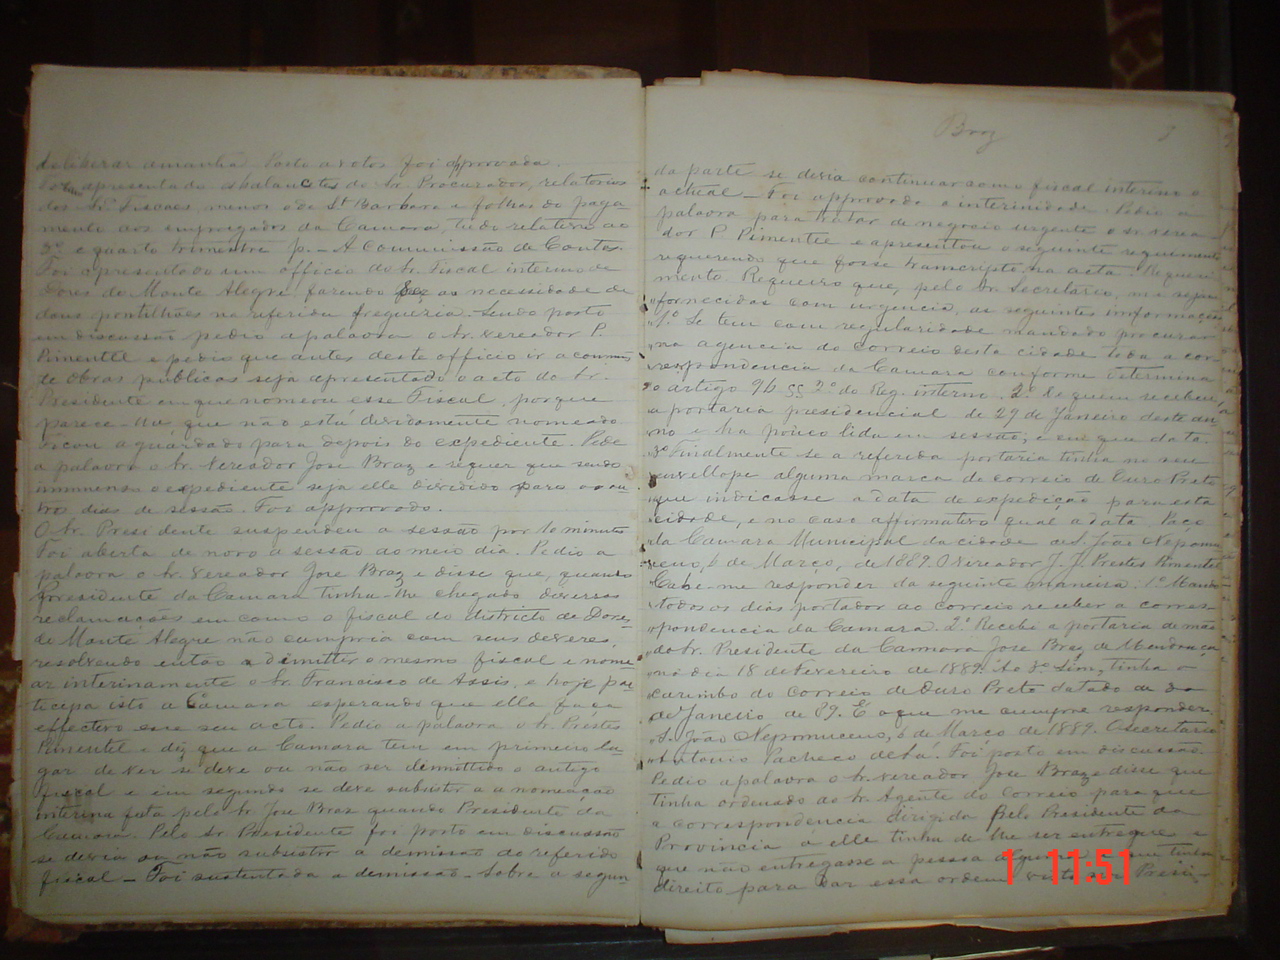 deliberar amanhã. Posto a votos foi approvada.
Foram apresentados os balancetes do Sr. Procurador, relatorios
dos Srs. Fiscaes, menos o de Sta Barbara e folhas do paga-
mento aos empregados da Camara, tudo relativo ao
e quarto trimestre p. — A Commissão de Contas.
Foi apresentado um officio do Sr. Fiscal interino de
Dores do Monte Alegre, fazendo necessidade de
dous pontilhões na referida freguezia. Sendo posto
em discussão pedio a palavra o Sr. vereador P.
Pimentel e pedio que antes deste officio ir a commis.
de Obras publicas seja apresentado o acto do Sr.
Presidente em que nomeou esse Fiscal, porque
parece-lhe que não está devidamente nomeado
Ficou aguardado para depois do expediente. Pede
a palavra o Sr. Vereador José Braz e requer que sendo
immenso o expediente seja elle dividido para ou-
tros dias de sessão. Foi approvado.
O Sr. Presidente suspendeu a sessão por 10 minutos
Foi aberta de novo a sessão ao meio dia. Pedio a
palavra o Sr. Vereador José Braz e disse que, quando
presidente da Camara tinha-lhe chegado diversas
reclamações em como o fiscal do districto de Dores
do Monte Alegre não cumpria com seus deveres,
resolvendo então a demittir o mesmo fiscal e nome-
ar interinamente o Sr. Francisco de Assis, e hoje par-
ticipa isto a Camara esperando que ella faça
effectivo esse seu acto. Pedio a palavra o Sr. Prestes
Pimentel e diz que a Camara tem em primeiro lu-
gar de ver se deve ou não ser demittido o antigo
fiscal e em segundo se deve subsistir a nomeação
interina feita pelo Sr. José Braz quando Presidente da
Camara. Pelo Sr. Presidente foi posto em discussão
se devia ou não subsistir a demissão do referido
fiscal — Foi sustentada a demissão — Sobre a segun-
Braz
da parte se devia continuar como fiscal interino o
actual — Foi approvada a interinidade. Pedio a
palavra para tratar de negocio urgente o Sr. verea-
dor P. Pimentel e apresentou o seguinte requerimento
requerendo que fosse transcripto na acta. Requeri-
mento. Requeiro que, pelo Sr. Secretario, me sejam
fornecidas com urgencia, as seguintes informações
1º Se tem com regularidade mandado procurar
na agencia do correio desta cidade toda a cor-
respondencia da Camara conforme determina
o artigo 96 §§ 2º do Reg. interno. 2º De quem recebeu
a portaria presidencial de 29 de Janeiro deste an-
no e ha pouco lida em sessão, e em que data.
3º Finalmente se a referida portaria tinha no seu
envellope alguma marca do correio de Ouro Preto
que indicasse a data de expedição para esta
cidade, e no caso affirmativo qual a data. Paço
da Camara Municipal da cidade de S. João Nepomu-
ceno, 6 de Março, de 1889. O Vereador J. J. Prestes Pimentel
Cabe-me responder da seguinte maneira. 1º Mando
todos os dias portador ao correio receber a corres-
pondencia da Camara. 2º Recebi a portaria de mão
do Sr. Presidente da Camara José Braz de Mendonça
no dia 18 de Fevereiro de 1889. Ao 3º Sim, tinha o
carimbo do correio de Ouro Preto datado de 30
de Janeiro de 89. É o que me cumpre responder.
S. João Nepomuceno, 6 de Março de 1889. O secretario
Antonio Pacheco de Sá. Foi posto em discussão.
Pedio a palavra o Sr. vereador José Braz e disse que
tinha ordenado ao Sr. Agente do Correio para que
a correspondencia dirigida pelo Presidente da
Provincia a elle tinha de lhe ser entregue e
que não entregasse a pessoa tinha
direito para dar essa ordem visto Presi-
1 11:51